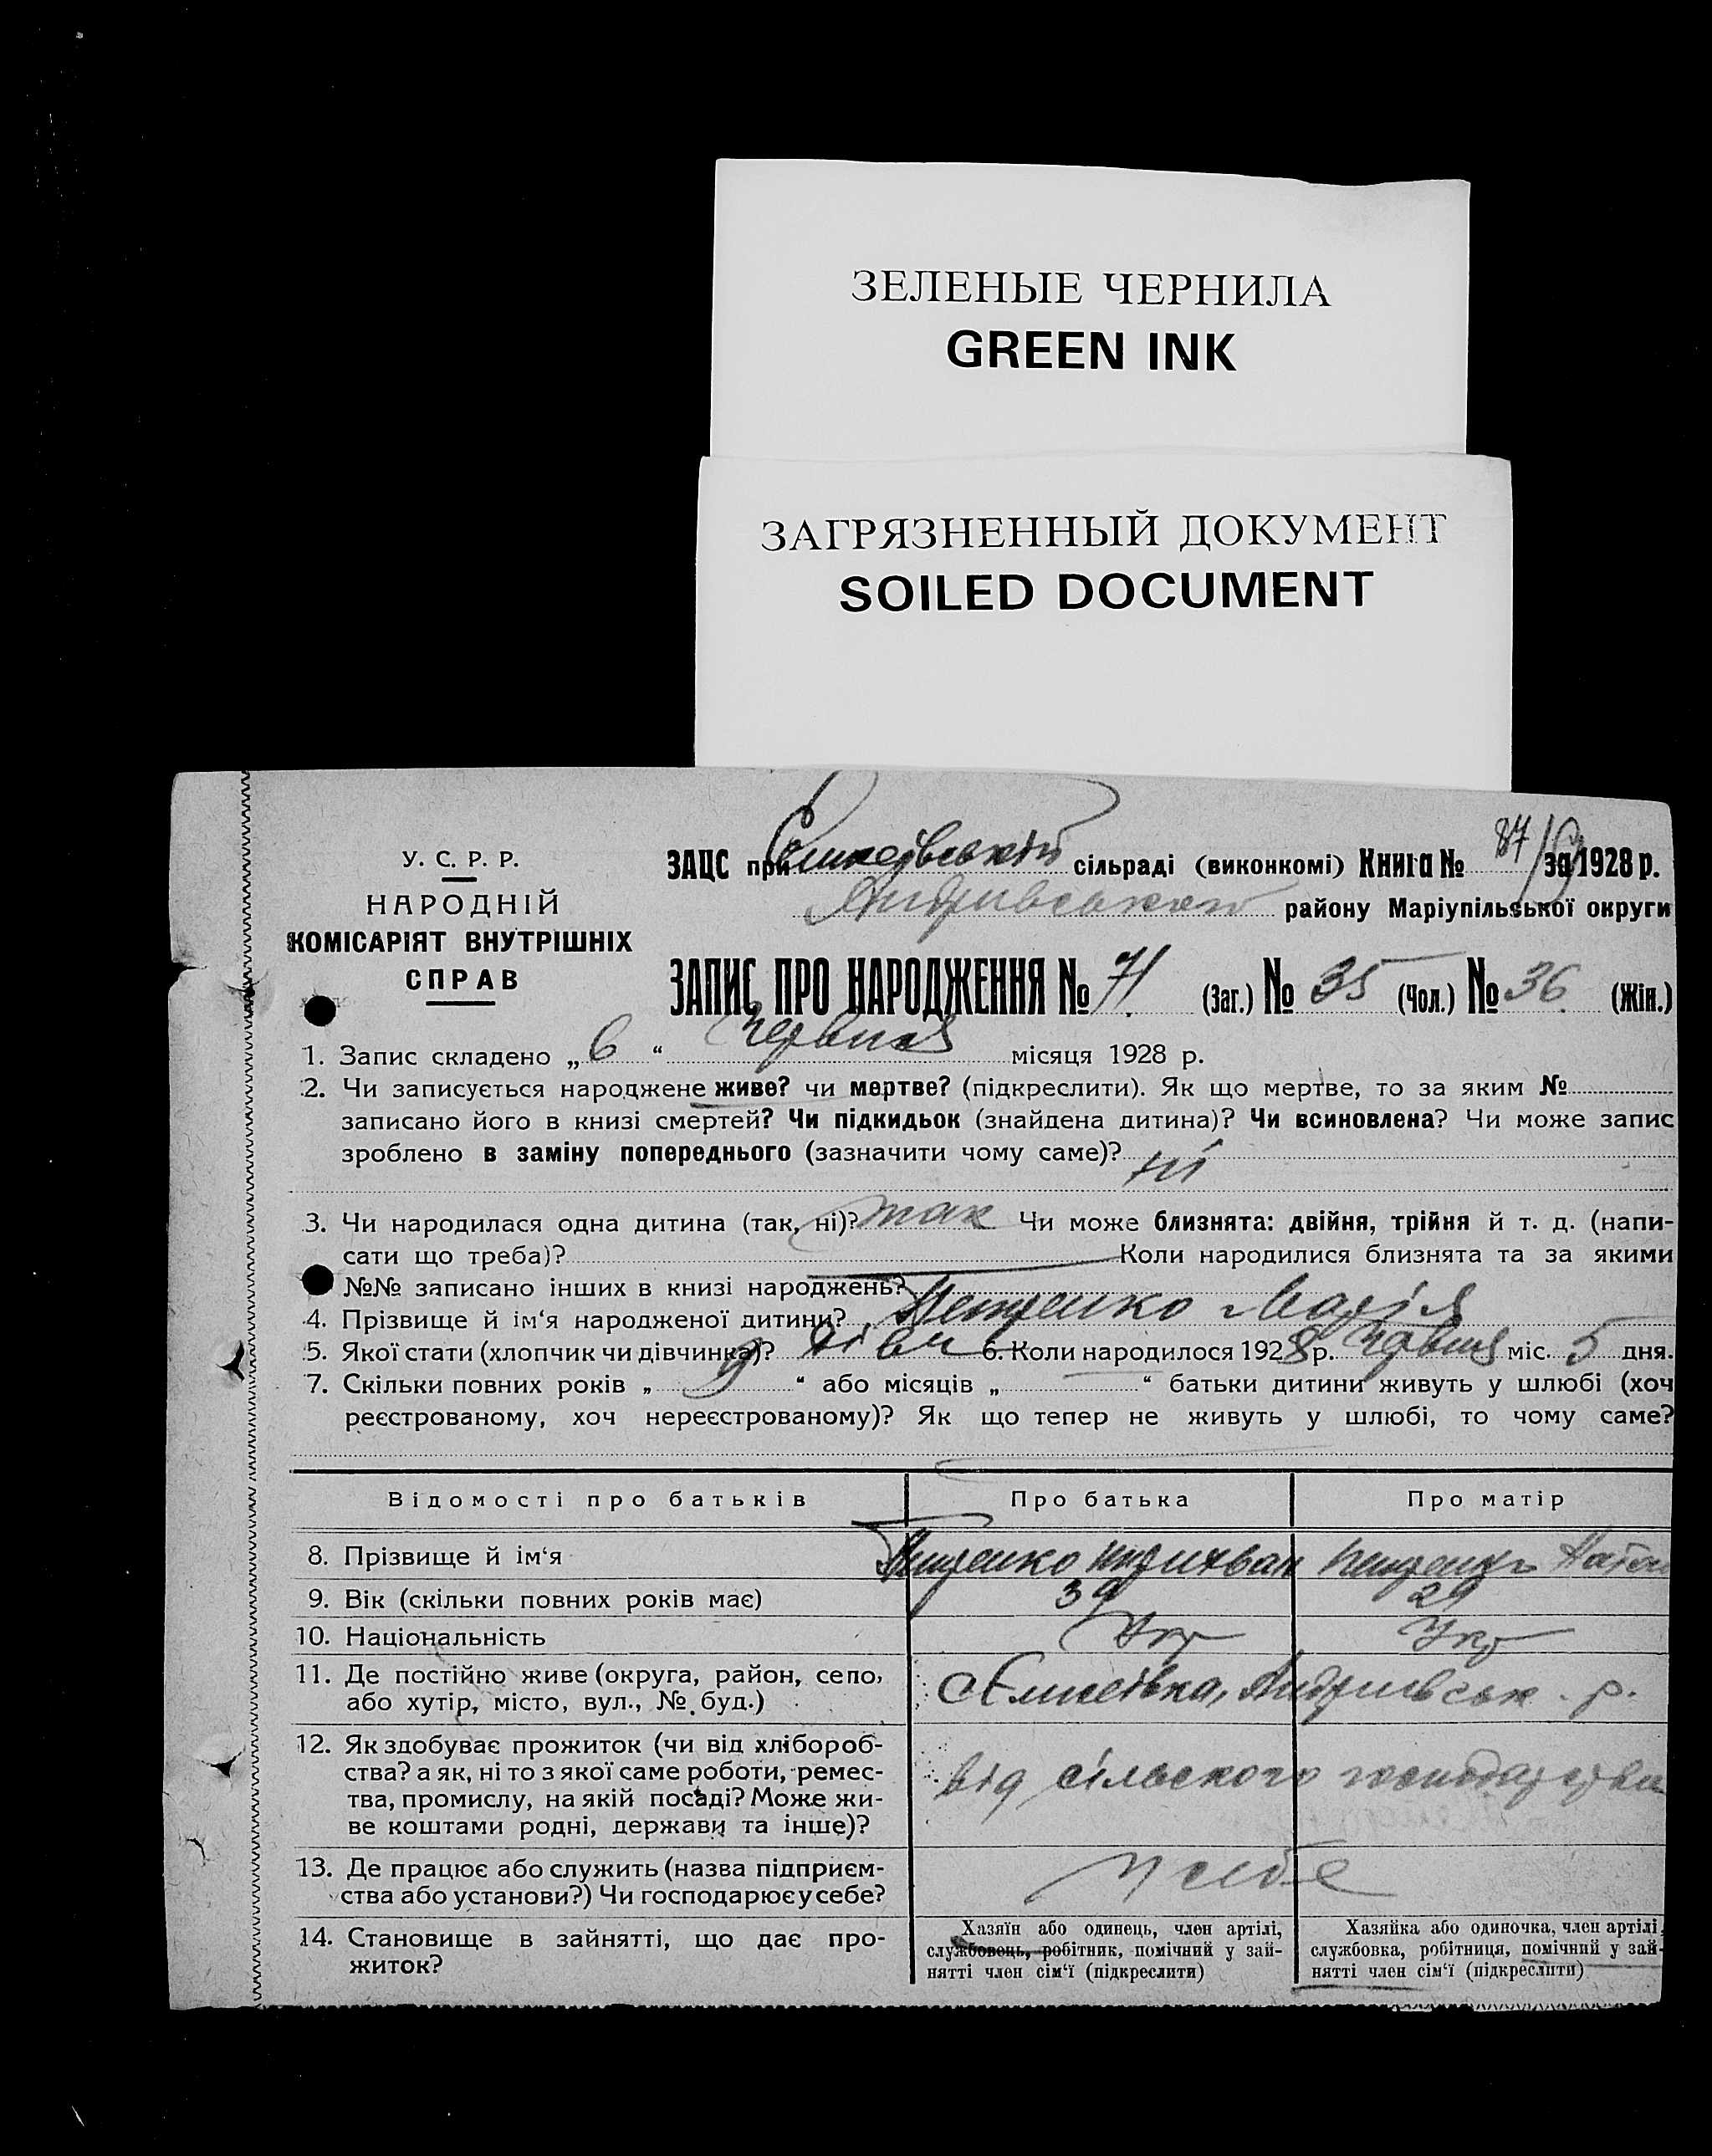 ЗЕЛЕНЫЕ ЧЕРНИЛА
GREEN INK
ЗАГРЯЗНЕННЫЙ ДОКУМЕНТ
SOILED DOCUMENT
У. С. Р. Р.
НАРОДНІЙ
КОМІСАРІЯТ ВНУТРІШНІХ
СПРАВ
ЗАЦС при сільраді (виконкомі) Книга № 87/ за 1928 р.
району Маріупільської округи
ЗАПИС ПРО НАРОДЖЕННЯ № 71 (Заг.) № 35 (Чол.) № 36 (Жін.)
1. Запис складено „ 6 “ Червня місяця 1928 р.
2. Чи записується народжене живе? чи мертве? (підкреслити). Як що мертве, то за яким №
записано його в книзі смертей? Чи підкидьок (знайдена дитина)? Чи всиновлена? Чи може запис
зроблено в заміну попереднього (зазначити чому саме)? ні
3. Чи народилася одна дитина (так, ні)? так Чи може близнята: двійня, трійня й т. д. (напи-
сати що треба)? Коли народилися близнята та за якими
№№ записано інших в книзі народжень?
4. Прізвище й ім‘я народженої дитини? Марія
5. Якої стати (хлопчик чи дівчинка)? дівч 6. Коли народилося 1928 р. Червня міс. 5 дня.
7. Скільки повних років „ 9 “ або місяців „ “ батьки дитини живуть у шлюбі (хоч
реєстрованому, хоч нереєстрованому)? Як що тепер не живуть у шлюбі, то чому саме?
Відомості про батьків Про батька Про матір
8. Прізвище й ім‘я
9. Вік (скільки повних років має) 39 29
10. Національність Укр Укр
11. Де постійно живе (округа, район, село,
або хутір, місто, вул., № буд.) с Єлисеївка, Андриівськ. р.
12. Як здобуває прожиток (чи від хлібороб-
ства? а як, ні то з якої саме роботи, ремес-
тва, промислу, на якій посаді? Може жи-
ве коштами родні, держави та інше)? від сільского господарства
13. Де працює або служить (назва підприєм-
ства або установи?) Чи господарює у себе? У себе
14. Становище в зайнятті, що дає про-
житок?
Хазяїн або одинець, член артілі,
службовець, робітник, помічний у зай-
нятті член сім‘ї (підкреслити)
Хазяйка або одиночка, член артілі,
службовка, робітниця, помічний у зай-
нятті член сім‘ї (підкреслити)